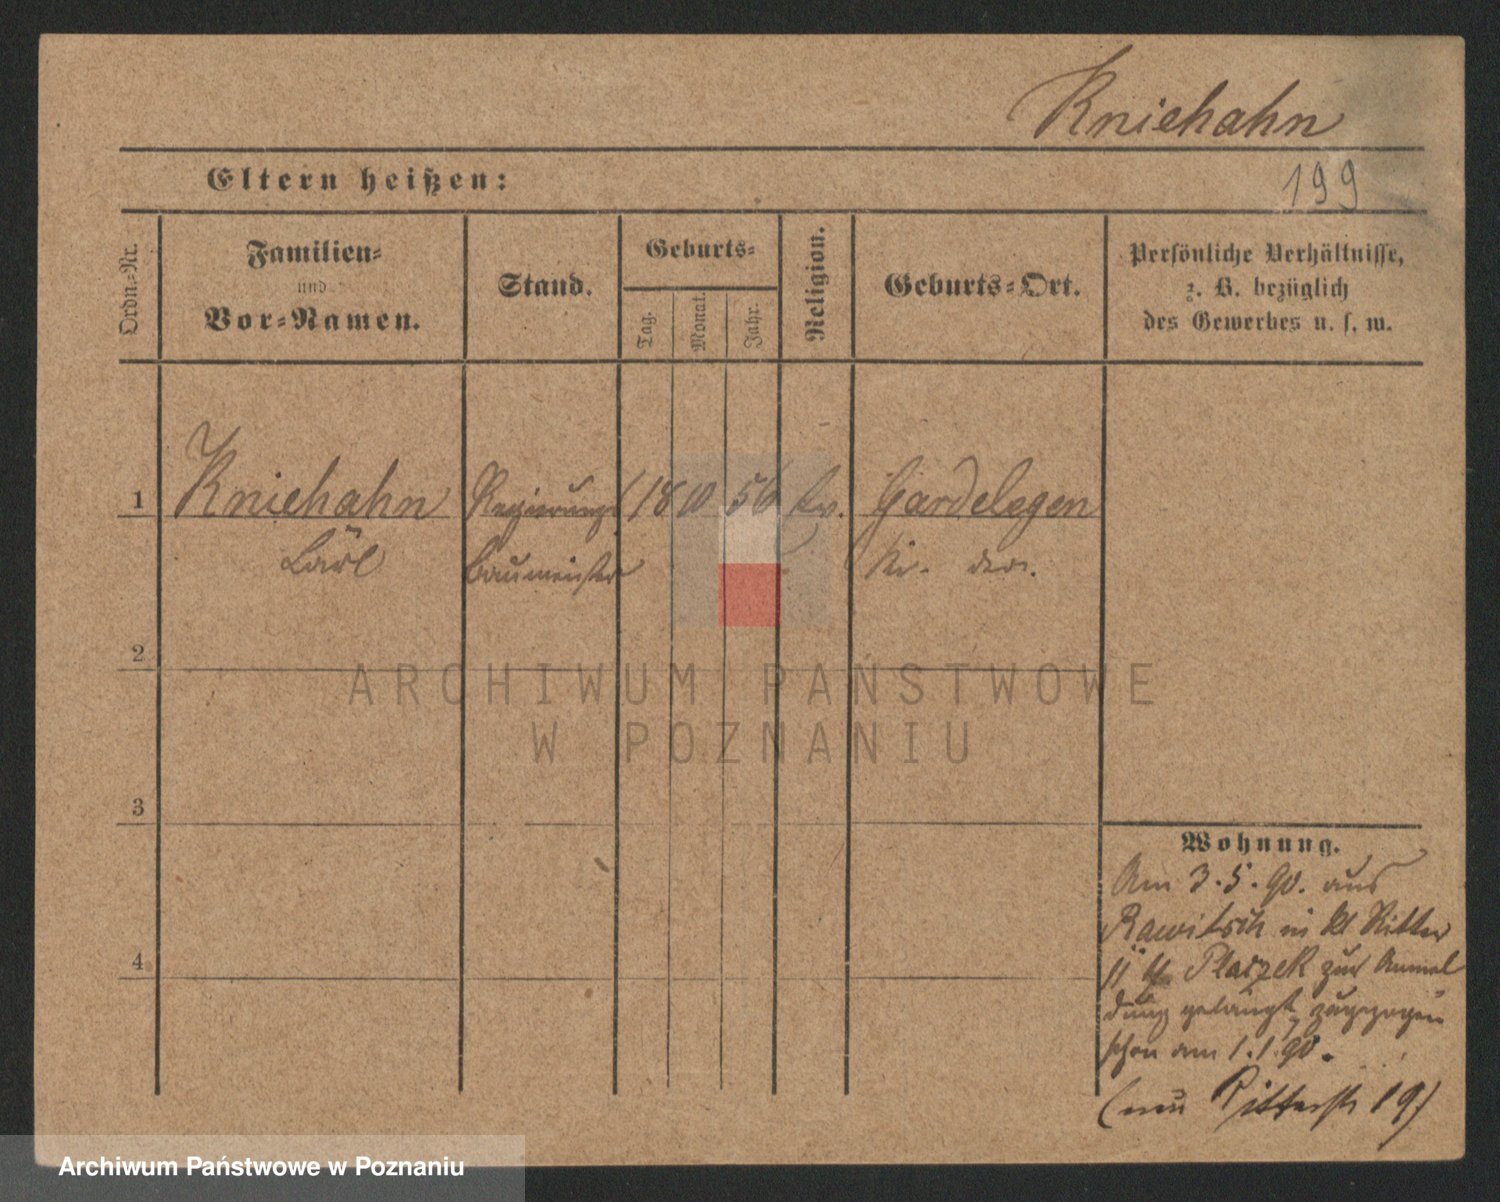 Kniehahn
Eltern heißen:
199
Ordn.-Nr.
Familien-
und
Vor-Namen.
Stand.
Geburts-
Tag.
Monat.
Jahr.
Religion.
Geburts-Ort.
Persönliche Verhältnisse,
z. B. bezüglich
des Gewerbes u. s. w.
1 Kniehahn Regierungs 18 10 56 Ev. Gardelegen
Carl Baumeister Kr. ders.
2
ARCHIWUM PAŃSTWOWE
W POZNANIU
3
Wohnung.
Am 3.5.90. aus
Rawitsch in kl Ritter
11 Placzek zur Anmel
dung gelangt, zugezogen
schon am 1.1.90.
(neu Ritterstr 19)
4
Archiwum Państwowe w Poznaniu